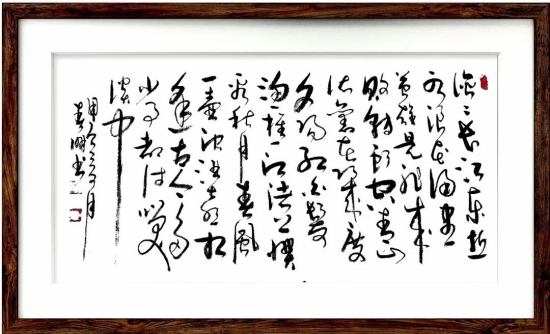 滚滚长江东逝
水浪花淘尽
英雄是非成
败转头空青山
依旧在几度
夕阳红白发
渔樵江渚上惯
看秋月春风
一壶浊酒喜相
逢古今多
少事都付笑
谈中
甲辰月
书